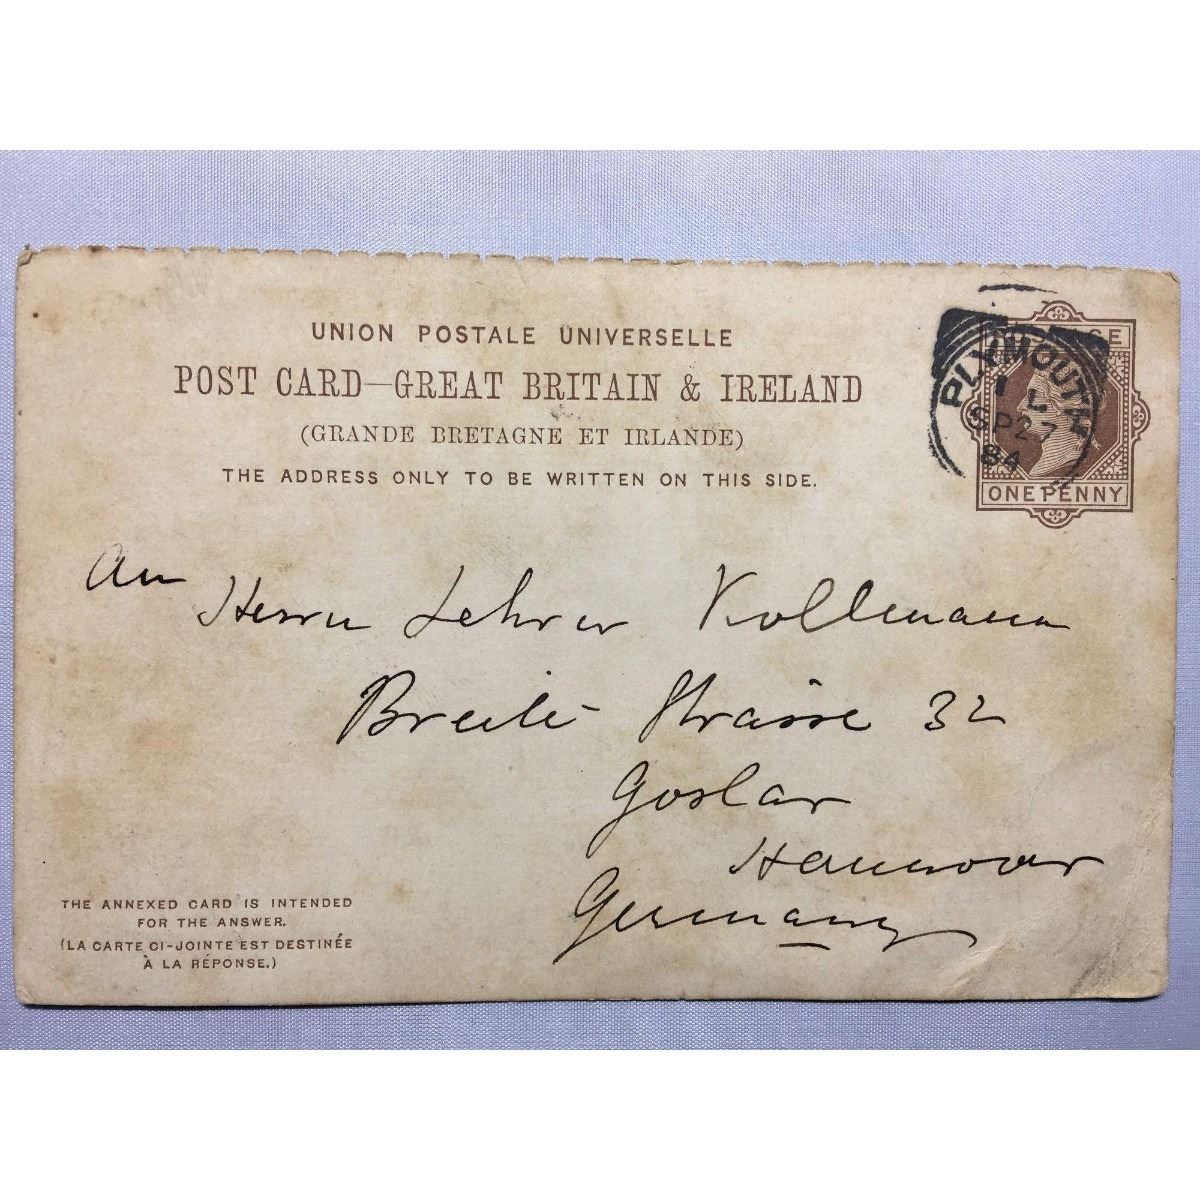 UNION POSTALE UNIVERSELLE
POST CARD—GREAT BRITAIN & IRELAND
(GRANDE BRETAGNE ET IRLANDE)
THE ADDRESS ONLY TO BE WRITTEN ON THIS SIDE.
PLYMOUTH
1 L
SP27
84
ONE PENNY
An
Herrn Lehrer Kollmann
Breite Strasse 32
Goslar
Hannover
Germany
THE ANNEXED CARD IS INTENDED
FOR THE ANSWER.
(LA CARTE CI-JOINTE EST DESTINÉE
À LA RÉPONSE.)